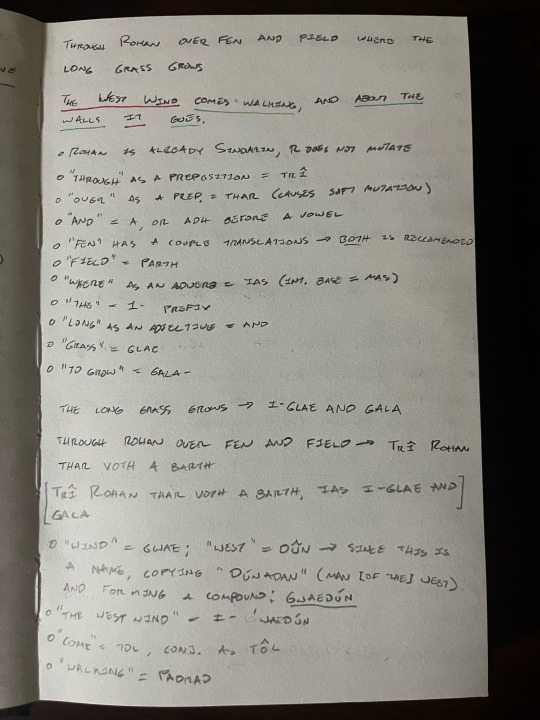 THROUGH ROHAN OVER FEN AND FIELD WHERE THE
LONG GRASS GROWS
THE WEST WIND COMES WALKING, AND ABOUT THE
WALLS IT GOES.
o ROHAN IS ALREADY SINDARIN, R DOES NOT MUTATE
o "THROUGH" AS A PREPOSITION = TRÎ
o "OVER" AS A PREP. = THAR (CAUSES SOFT MUTATION)
o "AND" = A, OR ADH BEFORE A VOWEL
o "FEN" HAS A COUPLE TRANSLATIONS → BOTH IS RECCOMENDED
o "FIELD" = PARTH
o "WHERE" AS AN ADVERB = IAS (INT. BASE = MAS)
o "THE" - I- PREFIX
o "LONG" AS AN ADJECTIVE = AND
o "GRASS" = GLAE
o "TO GROW" = GALA-
THE LONG GRASS GROWS → I-GLAE AND GALA
THROUGH ROHAN OVER FEN AND FIELD → TRÎ ROHAN
THAR VOTH A BARTH
[TRÎ ROHAN THAR VOTH A BARTH, IAS I-GLAE AND
GALA]
o "WIND" = GWAE; "WEST" = DÛN → SINCE THIS IS
A NAME, COPYING "DÚNADAN" (MAN [OF THE] WEST)
AND FORMING A COMPOUND: GWAEDÚN
o "THE WEST WIND" - I-'WAEDÚN
o "COME" = TOL, CONJ. AS TÔL
o "WALKING" = PADRAD